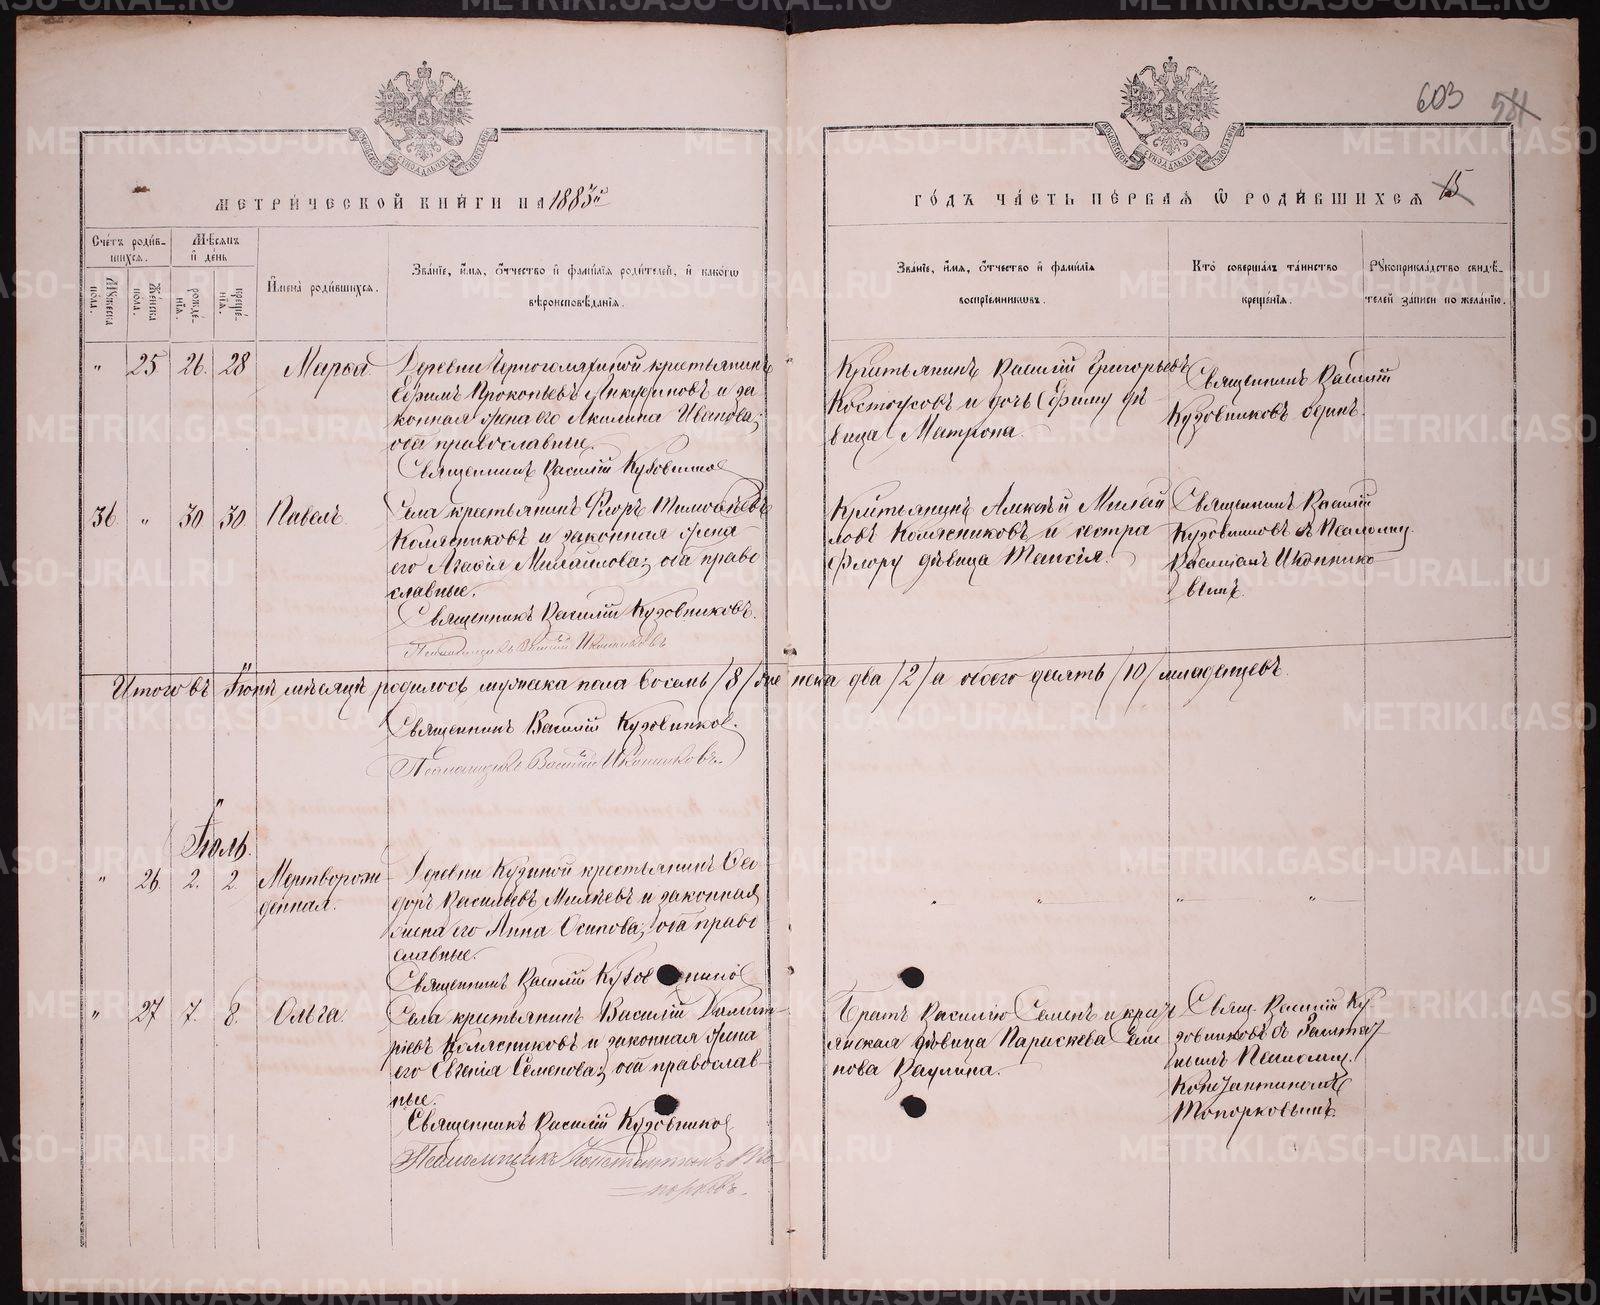 603
МЕТРИ́ЧЕСКОЙ КНИ́ГИ НА 1883й
ГО́ДЪ ЧА́СТЬ ПЕ́РВАЯ Ѿ РОДИ́ВШИХСЯ 15
Сче́тъ роди́вшихся.
Мѣ́сяцъ и҆ де́нь
Му́жеска по́ла.
Же́нска по́ла.
рожде́нїя.
креще́нїя.
И҆мена̀ роди́вшихся.
Зва́нїе, и҆́мя, ѻ҆́тчество и҆ фами́лїя роди́телей, и҆ како́гѡ
вѣроисповѣ́данїя.
Зва́нїе, и҆́мя, ѻ҆́тчество и҆ фами́лїя
воспрїе́мниковъ.
Кто̀ соверша́лъ та́инство
креще́нїя.
Рꙋкоприкла́дство свидѣ́-
телей за́писи по жела́нїю.
" 25 26. 28 Марѳа
крестьянинъ
Ефимъ Прокопьевъ и за
конная жена его Акилина Иванова;
оба православные.
Священникъ Василій Кузовников
Крестьянинъ Василій Григорьевъ
Костоусовъ и дочь Ефиму дѣ
вица Матрона.
Священникъ Василій
Кузовниковъ одинъ.
36. " 30 30 Павелъ.
Села крестьянинъ Флоръ Тимоѳеевъ
Колясниковъ и законная жена
его Агаѳія Михайлова; оба право
славные.
Священникъ Василій Кузовниковъ.
Псаломщикъ Василій Иконниковъ
Крестьянинъ Алексѣй Михай
ловъ Колясниковъ и сестра
Флору дѣвица Таисія.
Священникъ Василій
Кузовниковъ съ Псаломщ.
Василіемъ Иконнико
вымъ.
Итого въ Іюнѣ мѣсяцѣ родилось мужска пола восемь /8/ женска два /2/ а обоего десять /10/ младенцевъ.
Священникъ Василій Кузовников.
Псаломщикъ Василій Иконниковъ.
Іюль.
" 26. 2. 2. Мертворож
денная.
Деревни Кузиной крестьянинъ Ѳео
доръ Васильевъ и законная
жена его Анна Осипова; оба право
славные.
Священникъ Василій Кузовников
" 27 7. 8. Ольга.
Села крестьянинъ Василій Димит
ріевъ Колясниковъ и законная жена
его Евгенія Семенова; оба православ-
ные.
Священникъ Василій Кузовников
Псаломщикъ Константинъ То-
порковъ.
Братъ Василію Семенъ и крест
янская дѣвица Параскева Сте
пова Ваулина.
Свящ. Василій Ку
зовниковъ съ Заштат
нымъ Псаломщ.
Константиномъ
Топорковымъ.
METRIKI.GASO-URAL.RU